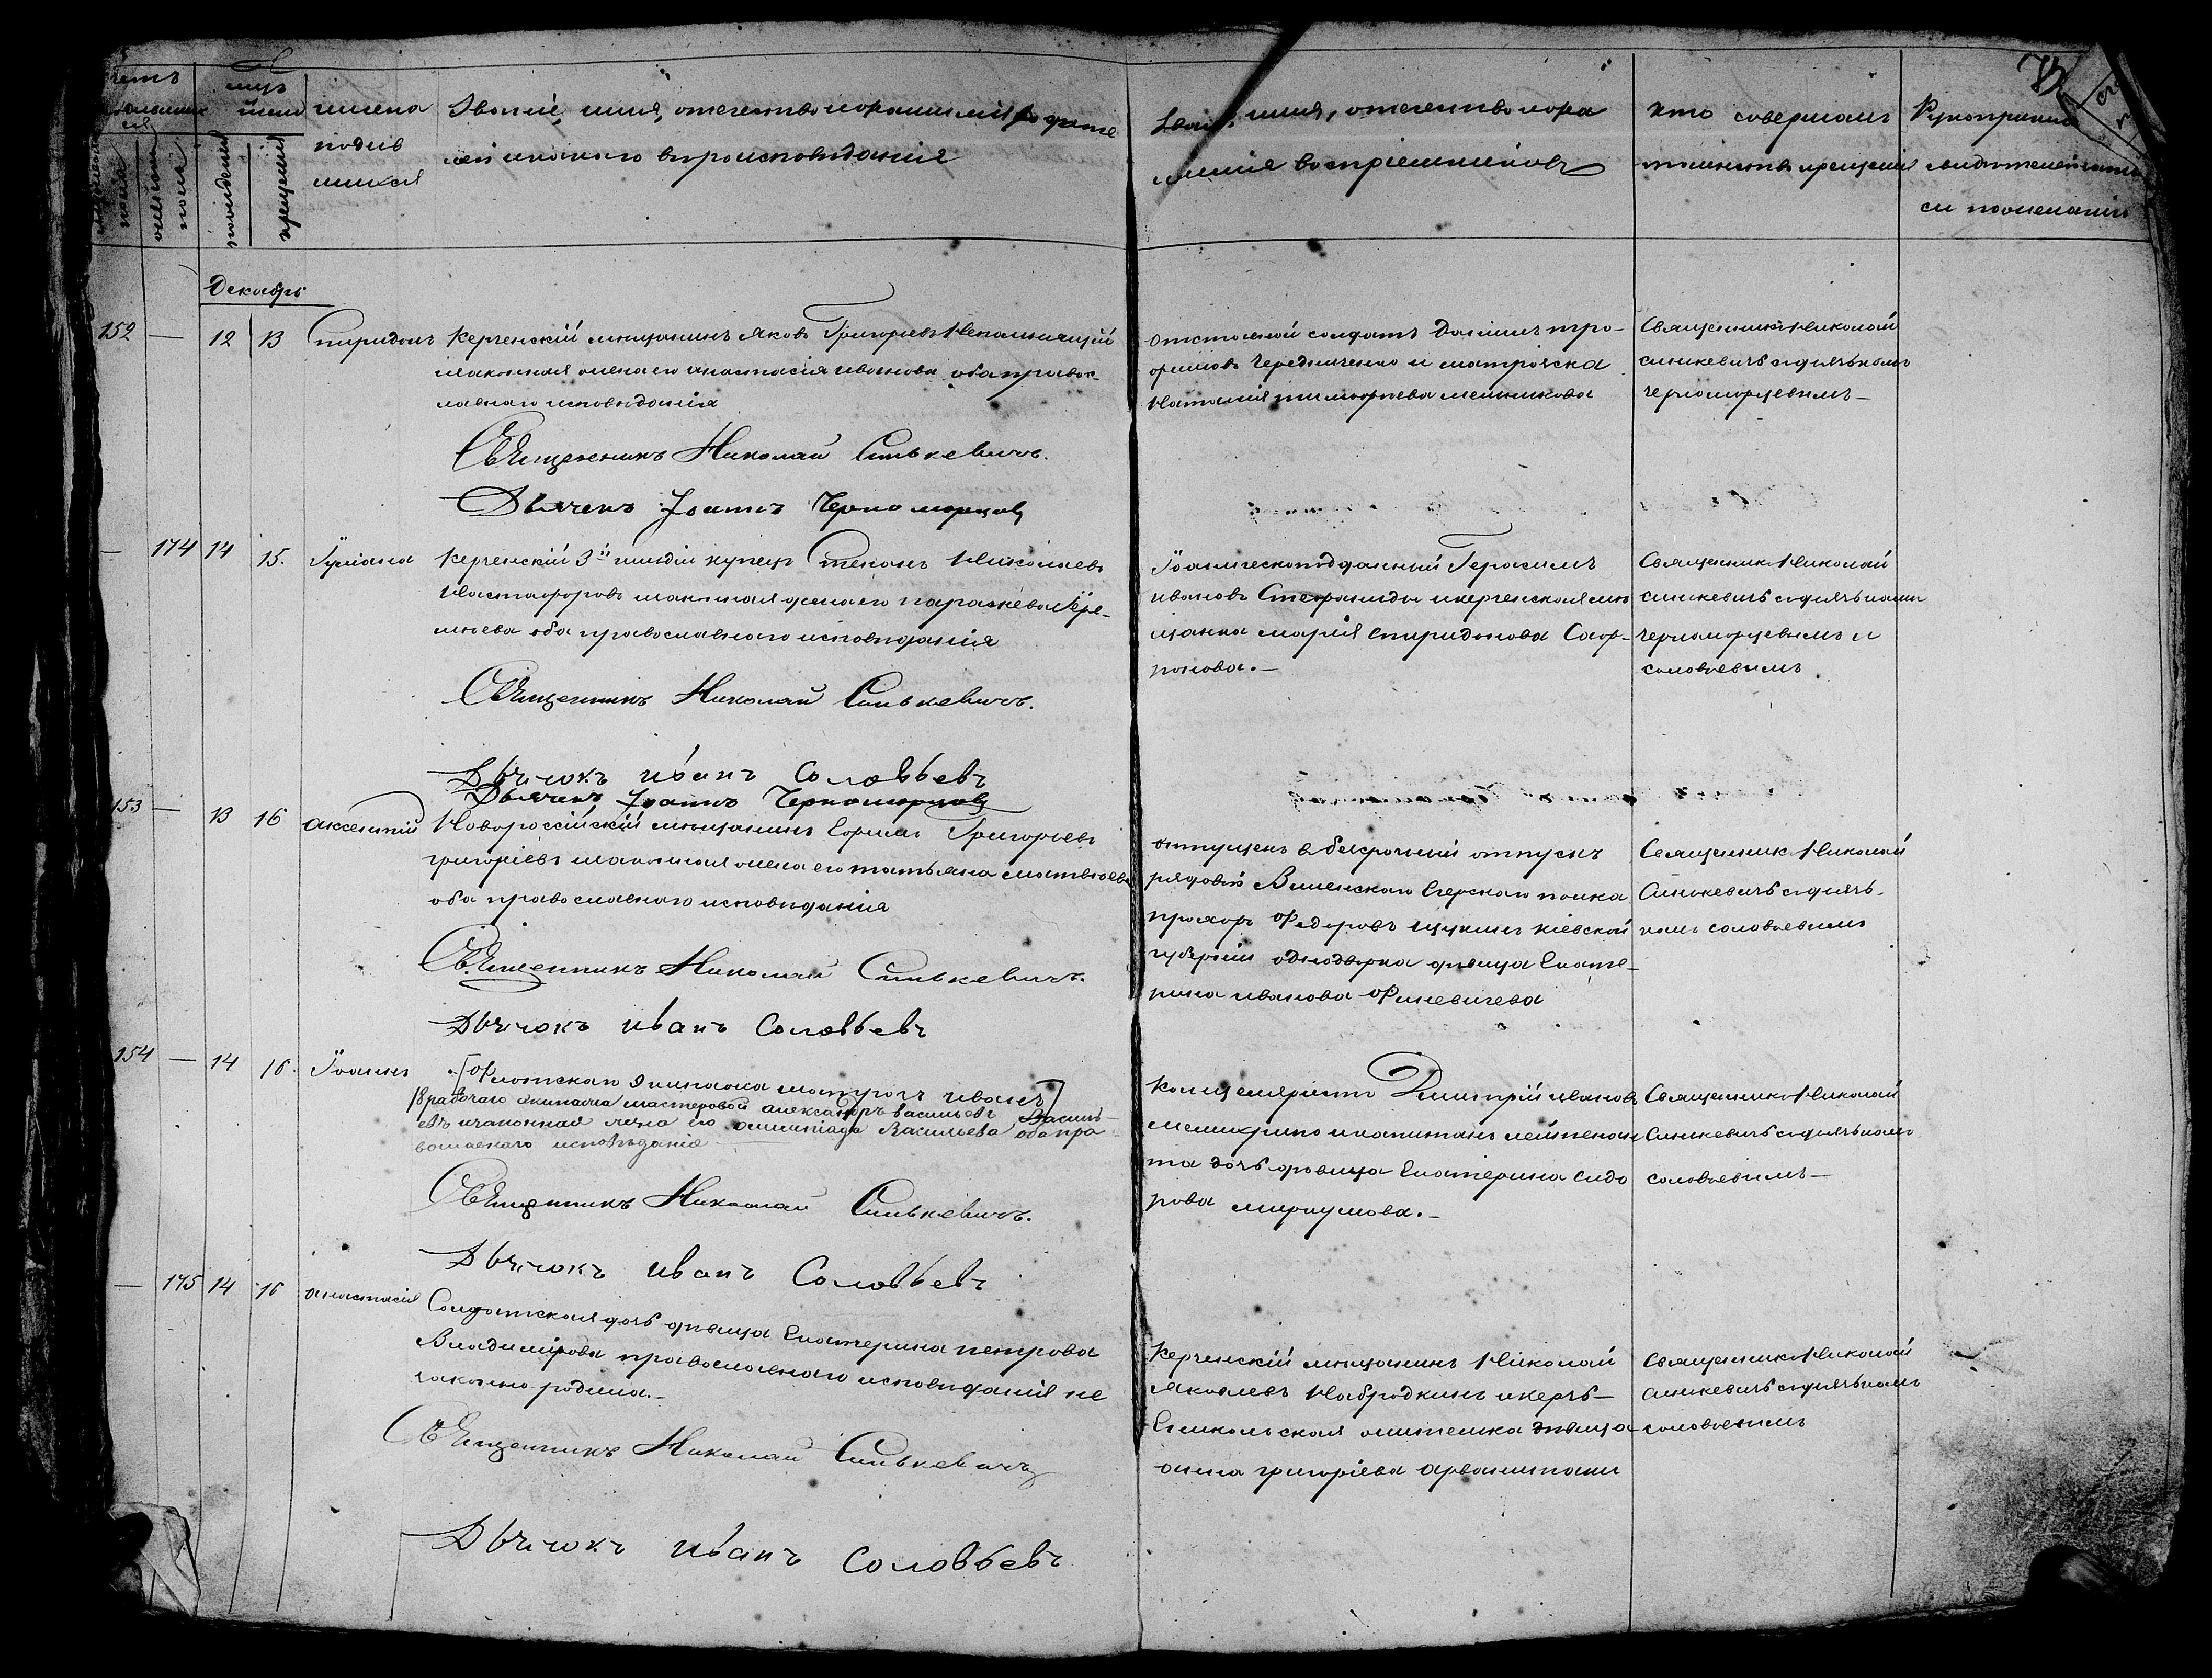 счетъ
мужескаго пола
женскаго пола
рожденія
крещенія
имена
родив
шихся
Званіе, имя, отечество и фамилія родите
лей и какого вѣроисповѣданія
имя, отечество и фа
милія воспріемниковъ
кто совершалъ
таинство крещенія
Рукоприкла
свидѣтелей
Декабрь
152 — 12 13 Спиридонъ
Керченскій мѣщанинъ Яковъ Григорьевъ Непомнящій
и законная жена его Анастасія Иванова оба правос-
лавнаго исповѣданія
отставной солдатъ Даніилъ Тро-
фимовъ Чередниченко и матроска
Наталія Тимофѣева Мельникова
Священникъ Николай
Синькевичъ съ дьячькомъ
Черноморцевымъ —
Священникъ Николай Синькевичъ.
Дьячекъ Іоаннъ Черноморцовъ
— 174 14 15. Іуліана
Керченскій 3й гильдіи купецъ Стефанъ Николаевъ
и законная жена его Параскева
оба православнаго исповѣданія
Герасимъ
Ивановъ Стефаниди и керченская мѣ
щанка Марія Спиридонова Соф-
ронова. —
Священникъ Николай
Синькевичъ съ дьячьками
Черноморцевымъ и
Соловьевымъ
Священникъ Николай Синькевичъ.
Дьячокъ Иванъ Соловьевъ
Дьячекъ Іоаннъ Черноморцовъ
153 — 13 16 Аксентій
Новороссійскій мѣщанинъ Ефимъ Григорьевъ
Григоріевъ и законная жена его Татьяна Матвѣева
оба православнаго исповѣданія
отпускъ
рядовой Виленскаго Егерскаго полка
Прохоръ Федоровъ Щукинъ Кіевской
губерніи однодворка дѣвица Екате-
рина Иванова Финевичева
Священникъ Николай
Синькевичъ съ дьячь-
комъ Соловьевымъ
Священникъ Николай Синькевичъ.
Дьячокъ Иванъ Соловьевъ
154 — 14 16. Іоаннъ
[Флотскаго экипажа матрозъ Иванъ]
рабочаго экипажа мастеровой Александръ Васильевъ Василь-
евъ и законная жена его Олимпіада Васильева оба пра
вославнаго исповѣданія
Канцеляристъ Димитрій Ивановъ
и капитанъ лейтенан
та дочь дѣвица Екатерина Сидо
рова
Священникъ Николай
Синькевичъ съ дьячькомъ
Соловьевымъ —
Священникъ Николай Синькевичъ.
Дьячокъ Иванъ Соловьевъ
— 175 14 16 Анастасія
Солдатская дочь дѣвица Екатерина Петрова
Владимірова православнаго исповѣданія не
законно родила. —
Керченскій мѣщанинъ Николай
Яковлевъ Набродкинъ и керчь-
Еникольская жителька дѣвица
Анна Григоріева
Священникъ Николай
Синькевичъ съ дьячькомъ
Соловьевымъ
Священникъ Николай Синькевичъ
Дьячокъ Иванъ Соловьевъ